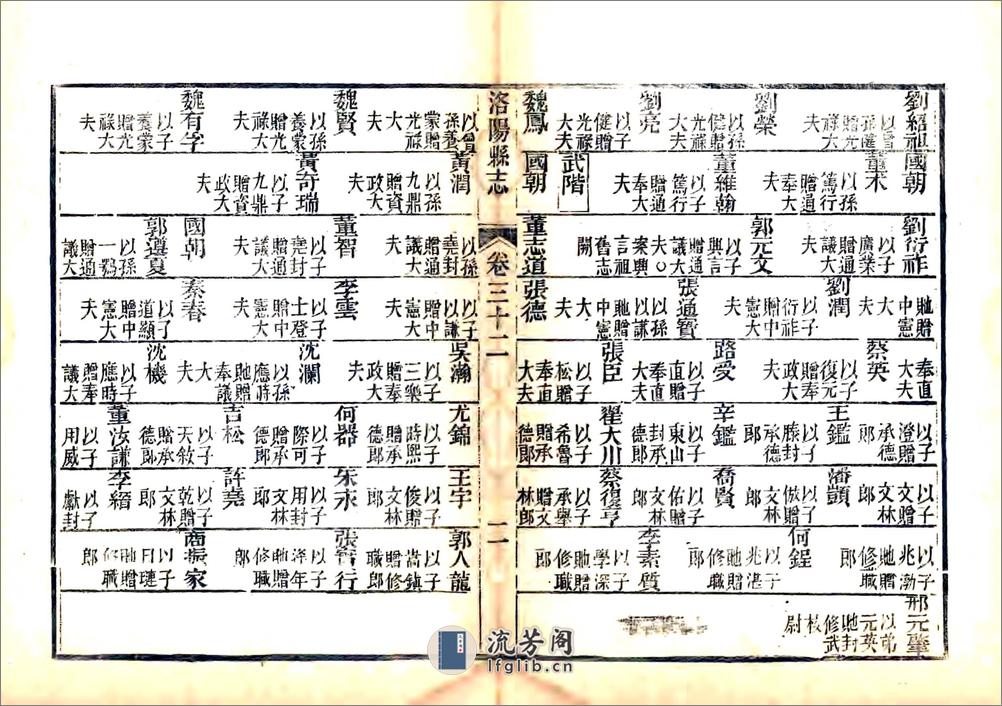 劉紹祖
以曾孫健贈光祿大夫
劉榮
以孫健贈光祿大夫
劉亮
以子健贈光祿大夫
魏鳳
國朝
董术
以孫篤行贈通奉大夫
董維翰
以子篤行贈通奉大夫
武階
國朝
劉衍祚
以子廣業贈通議大夫
郭元文
以子興言贈通議大夫○案興言祖舊志開
董志道
貤贈中憲大夫
劉潤
以子衍祚贈中憲大夫
張通寶
以孫以謙貤贈中憲大夫
張德
奉直大夫
蔡英
以子復元贈奉直大夫
路受
以子直贈奉直大夫
張臣
以子松贈奉直大夫
澄贈承德郎
王鑑
以子滕封承德郎
辛鑑
以子東山封承德郎
翟大川
以子希魯贈承德郎
以子文贈文林郎
潘顗
以子倣贈文林郎
喬賢
以子佑贈文林郎
蔡復亨
以子承舉贈文林郎
以子兆渤貤贈修職郎
何鋥
以子兆湛貤贈修職郎
李素質
以子學深貤贈修職郎
邢元肇
以弟元英貤封修武校尉
洛陽縣志
卷三十二
二
以曾孫養蒙贈光祿大夫
魏賢
以孫養蒙贈光祿大夫
魏有孚
以子養蒙贈光祿大夫
黃潤
以孫九鼎贈資政大夫
黃奇瑞
以子九鼎贈資政大夫
以孫堯封贈通議大夫
董智
以子堯封贈通議大夫
國朝
郭遵夏
以孫一鶚贈通議大
以子以謙贈中憲大夫
李雲
以子士登贈中憲大夫
秦春
以子道顯贈中憲大夫
吳瀚
以子三樂贈奉政大夫
沈瀾
以孫應時貤贈奉議大夫
沈機
以子應時贈奉議大
尤錦
以子時熙贈承德郎
何器
以子際可贈承德郎
吉松
以子天敘贈承德郎
董汝謙
以子用威
王宇
以子俊贈文林郎
朱永
以子用封文林郎
許堯
以子乾贈文林郎
李縉
以子獻封
郭人龍
以子嵩鎮貤贈修職郎
張實行
以子澤年貤贈修職郎
商振家
以子曰璉貤贈修職郎
流芳阁
lfglib.cn